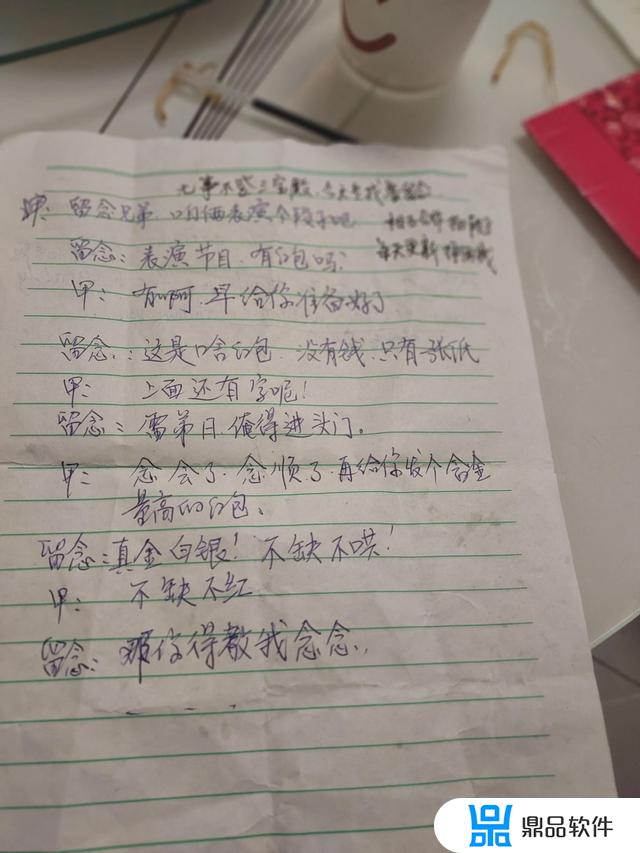 无事不登三宝殿.
甲: 留念兄弟. 咱俩表演个段子吧
每天更新
留念: 表演节目. 有红包吗?
甲: 有啊啊. 早给你准备好了
留念: 这是啥红包. 没有钱. 只有一张纸
甲: 上面还有字呢!
留念: 俺得进头门.
甲: 念会了. 念顺了. 再给你发个含金
量高的红包.
留念: 真金白银! 不缺不哄!
甲: 不缺不红
留念: 那你得教我念念.
鼎品软件